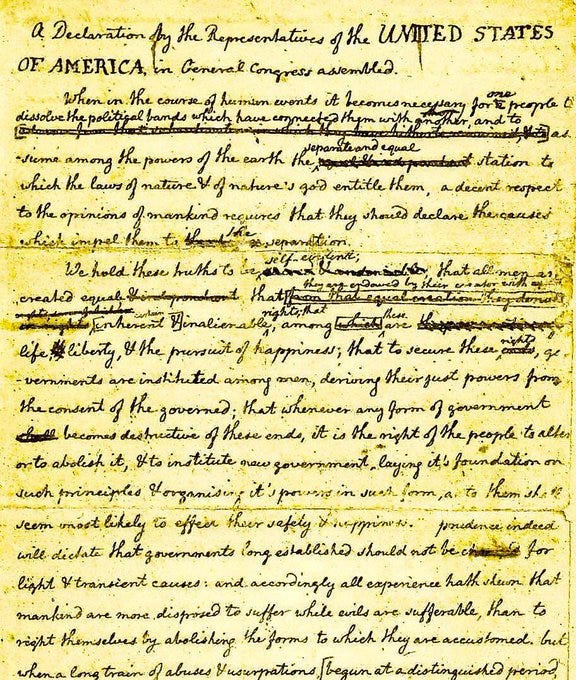 A Declaration by the Representatives of the UNITED STATES
OF AMERICA, in General Congress assembled.
When in the course of human events it becomes necessary for one people to
dissolve the political bands which have connected them with another, and to
as-
-sume among the powers of the earth the separate and equal station to
which the laws of nature & of nature's god entitle them, a decent respect
to the opinions of mankind requires that they should declare the causes
which impel them to the separation.
We hold these truths to be self-evident; that all men are
created equal & independent that they are endowed by their creator with
[from that equal creation they
[inherent &] certain inalienable rights, that among [which] these are
life liberty, & the pursuit of happiness; that to secure these rights, go
-vernments are instituted among men, deriving their just powers from
the consent of the governed; that whenever any form of government
shall becomes destructive of these ends, it is the right of the people to alter
or to abolish it, & to institute new government, laying it's foundation on
such principles & organising it's powers in such form, as to them shall
seem most likely to effect their safety & happiness. prudence indeed
will dictate that governments long established should not be for
light & transient causes: and accordingly all experience hath shewn that
mankind are more disposed to suffer while evils are sufferable, than to
right themselves by abolishing the forms to which they are accustomed. but
when a long train of abuses & usurpations, [begun at a distinguished period,